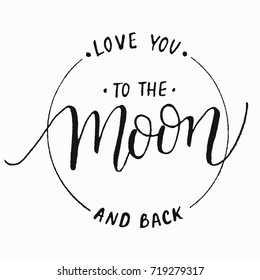 · LOVE YOU ·
· TO THE ·
Moon
· AND BACK ·
shutterstock.com · 719279317